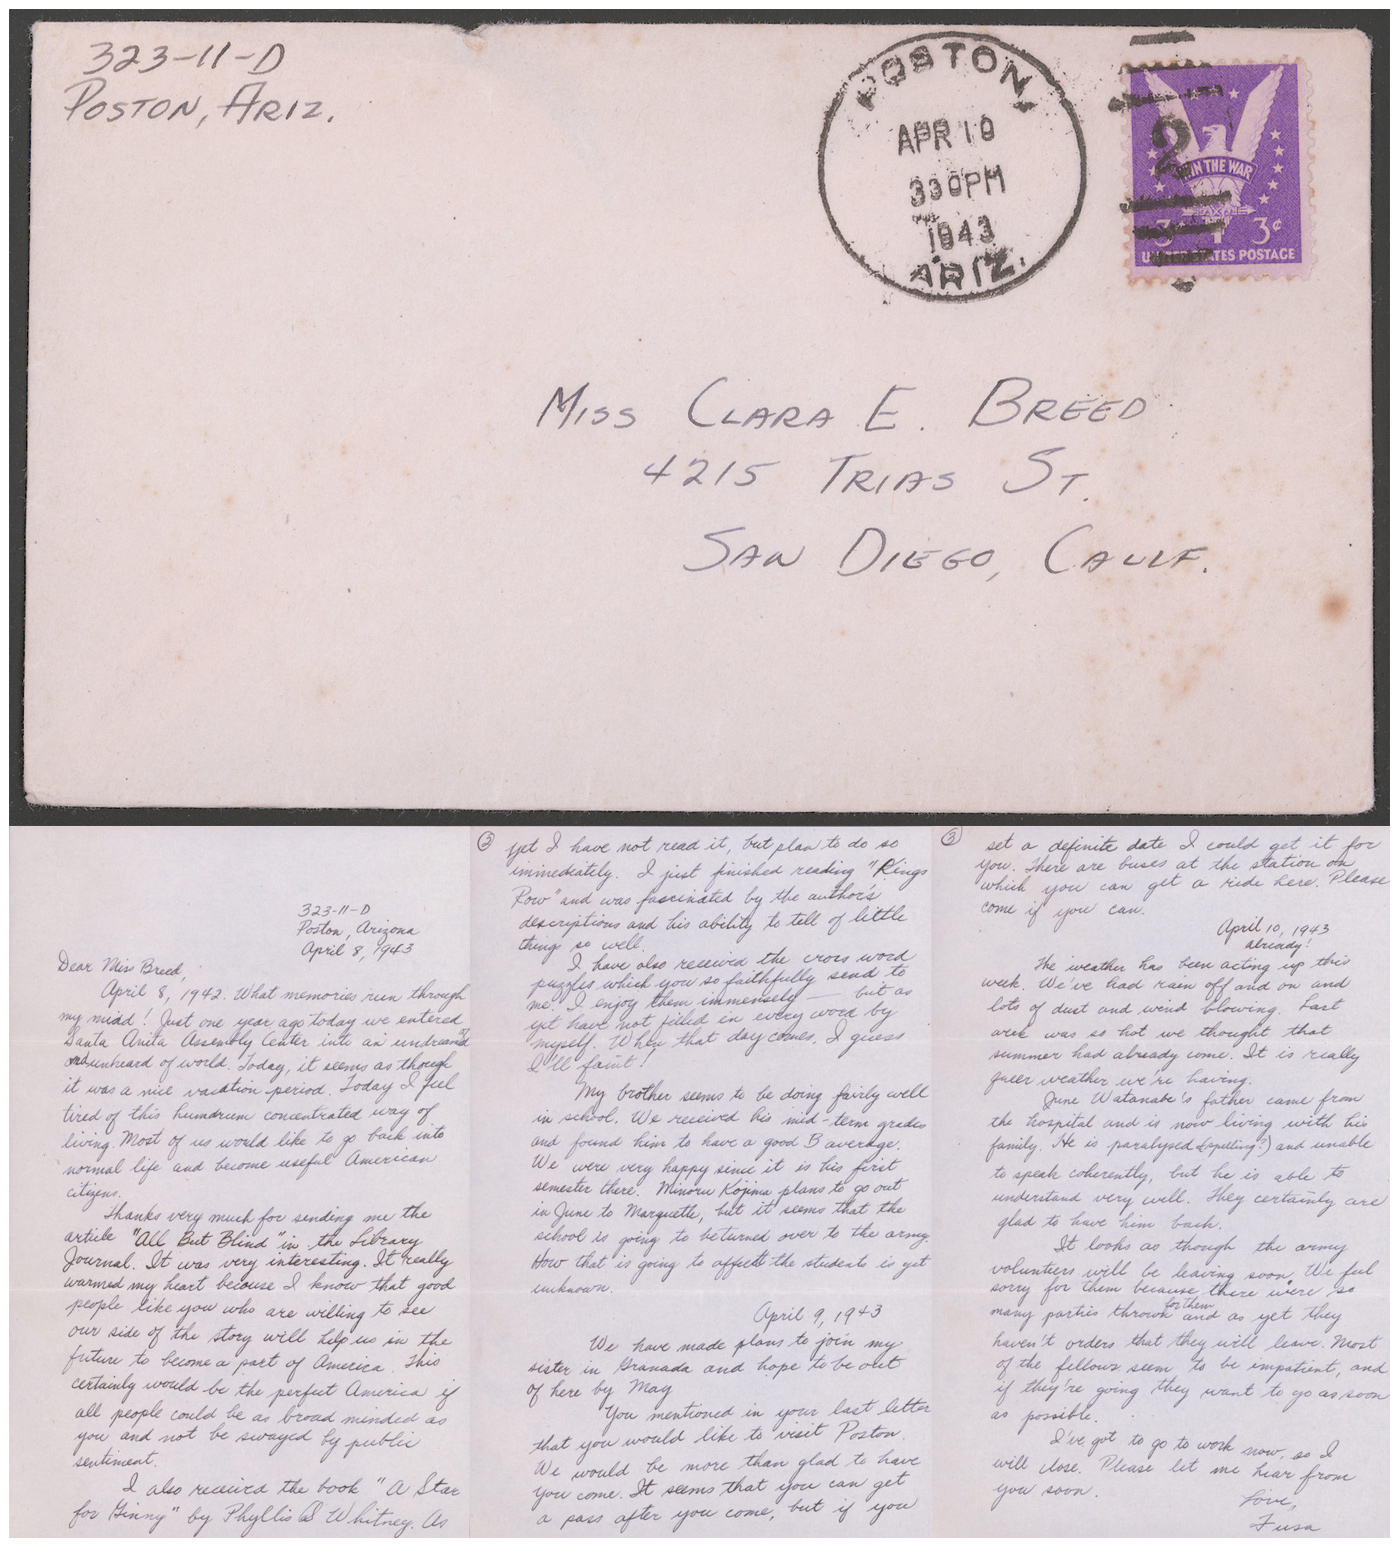 323-11-D
POSTON, ARIZ.
POSTON,
APR 10
330PM
1943
ARIZ.
2
WIN THE WAR
3 3¢
UNITED STATES POSTAGE
MISS CLARA E. BREED
4215 TRIAS ST.
SAN DIEGO, CALIF.
323-11-D
Poston, Arizona
April 8, 1943
Dear Miss Breed,
April 8, 1942. What memories run through
my mind! Just one year ago today we entered
Santa Anita Assembly Center into an undreamed of
and unheard of world. Today, it seems as though
it was a nice vacation period. Today I feel
tired of this humdrum concentrated way of
living. Most of us would like to go back into
normal life and become useful American
citizens.
Thanks very much for sending me the
article "All But Blind" in the Library
Journal. It was very interesting. It really
warmed my heart because I know that good
people like you who are willing to see
our side of the story will help us in the
future to become a part of America. This
certainly would be the perfect America if
all people could be as broad minded as
you and not be swayed by public
sentiment.
I also received the book "A Star
for Ginny" by Phyllis Whitney. As
2
yet I have not read it, but plan to do so
immediately. I just finished reading "Kings
Row" and was fascinated by the author's
descriptions and his ability to tell of little
things so well.
I have also received the cross word
puzzles which you so faithfully send to
me. I enjoy them immensely — but as
yet have not filled in every word by
myself. When that day comes, I guess
I'll faint!
My brother seems to be doing fairly well
in school. We received his mid-term grades
and found him to have a good B average.
We were very happy since it is his first
semester there. Minoru Kojima plans to go out
in June to Marquette, but it seems that the
school is going to be turned over to the army.
How that is going to affect the students is yet
unknown.
April 9, 1943
We have made plans to join my
sister in Granada and hope to be out
of here by May
You mentioned in your last letter
that you would like to visit Poston.
We would be more than glad to have
you come. It seems that you can get
a pass after you come, but if you
3
set a definite date I could get it for
you. There are buses at the station on
which you can get a ride here. Please
come if you can.
April 10, 1943
already!
The weather has been acting up this
week. We've had rain off and on and
lots of dust and wind blowing. Last
week was so hot we thought that
summer had already come. It is really
queer weather we're having.
June Watanabe's father came from
the hospital and is now living with his
family. He is paralysed (spelling?) and unable
to speak coherently, but he is able to
understand very well. They certainly are
glad to have him back.
It looks as though the army
volunteers will be leaving soon. We feel
sorry for them because there were so
many parties thrown for them and as yet they
haven't orders that they will leave. Most
of the fellows seem to be impatient, and
if they're going they want to go as soon
as possible.
I've got to go to work now, so I
will close. Please let me hear from
you soon.
Love,
Fusa